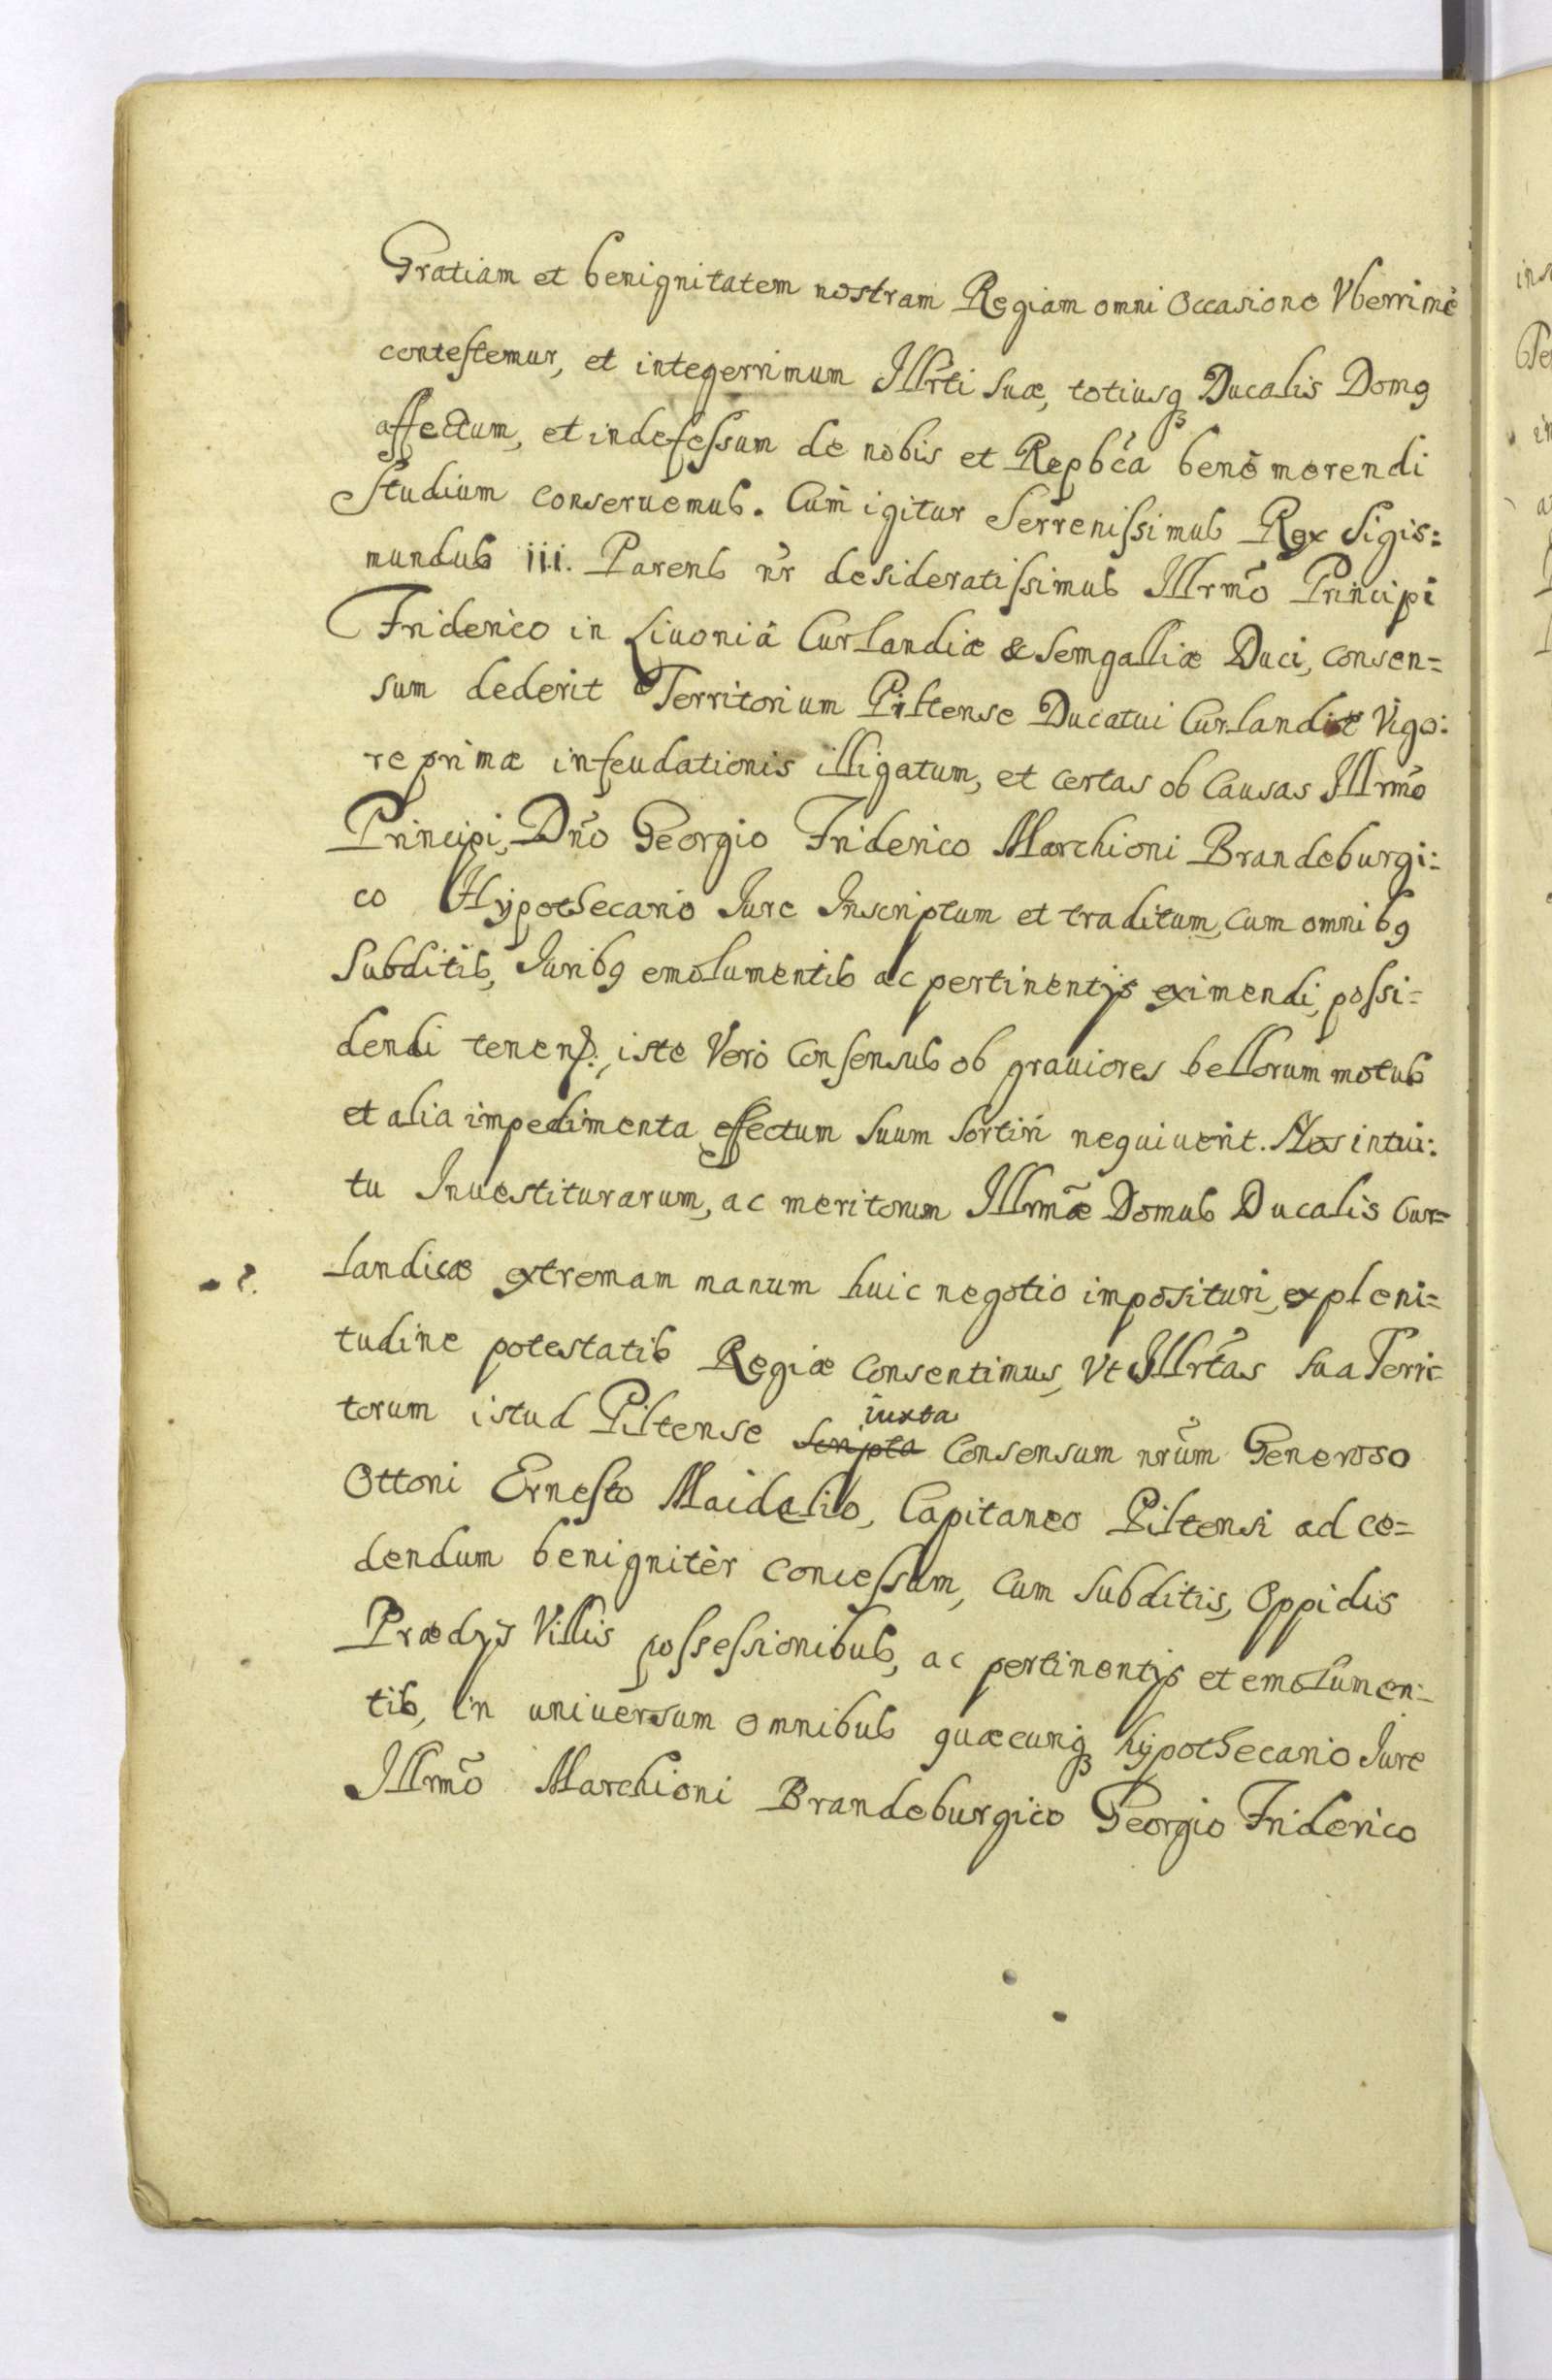 Gratiam et benignitatem nostram Regiam omni occasione Vberrimè
contestemur, et integerrimum Illrti suæ, totiusq3 Ducalis Dom9
affectum, et indefessum de nobis et Repbca benè merendi
studium conseruemus. Cum igitur Serrenissimus Rex Sigis:
mundus iii. Parens nr desideratissimus Illrmo Principi
Friderico in Liuoniâ Curlandiæ & Semgalliæ Duci, consen=
sum dederit Territorium Piltense Ducatui Curlandiæ Vigo:
re primæ infeudationis illigatum, et certas ob Causas Illrmo
Principi, Dno Georgio Friderico Marchioni Brandeburgi:
co Hypothecario Iure Inscriptum et traditum, cum omnib9
Subditis, Iurib9 emolumentis ac pertinentijs eximendi, possi=
dendi iste Verò Consensus ob grauiores bellorum motus
et alia impedimenta effectum suum sortiri nequiuerit. Nos intui:
tu Inuestiturarum, ac meritorum Illrmæ Domus Ducalis Cur=
landicæ extremam manum huic negotio imposituri, ex pleni=
tudine potestatis Regiæ Consentimus, Vt Illrtas sua Terri=
torum istud Piltense scripta iuxta Consensum nrum Generoso
Ottoni Ernesto Maidelio, Capitaneo Piltensi ad ce=
dendum benignitèr concessum, cum subditis, Oppidis
Prædijs Villis possessionibus, ac pertinentijs et emolumen=
tis, in uniuersum omnibus quæcunq3 hypothecario Iure
Illrmo Marchioni Brandeburgico Georgio Friderico